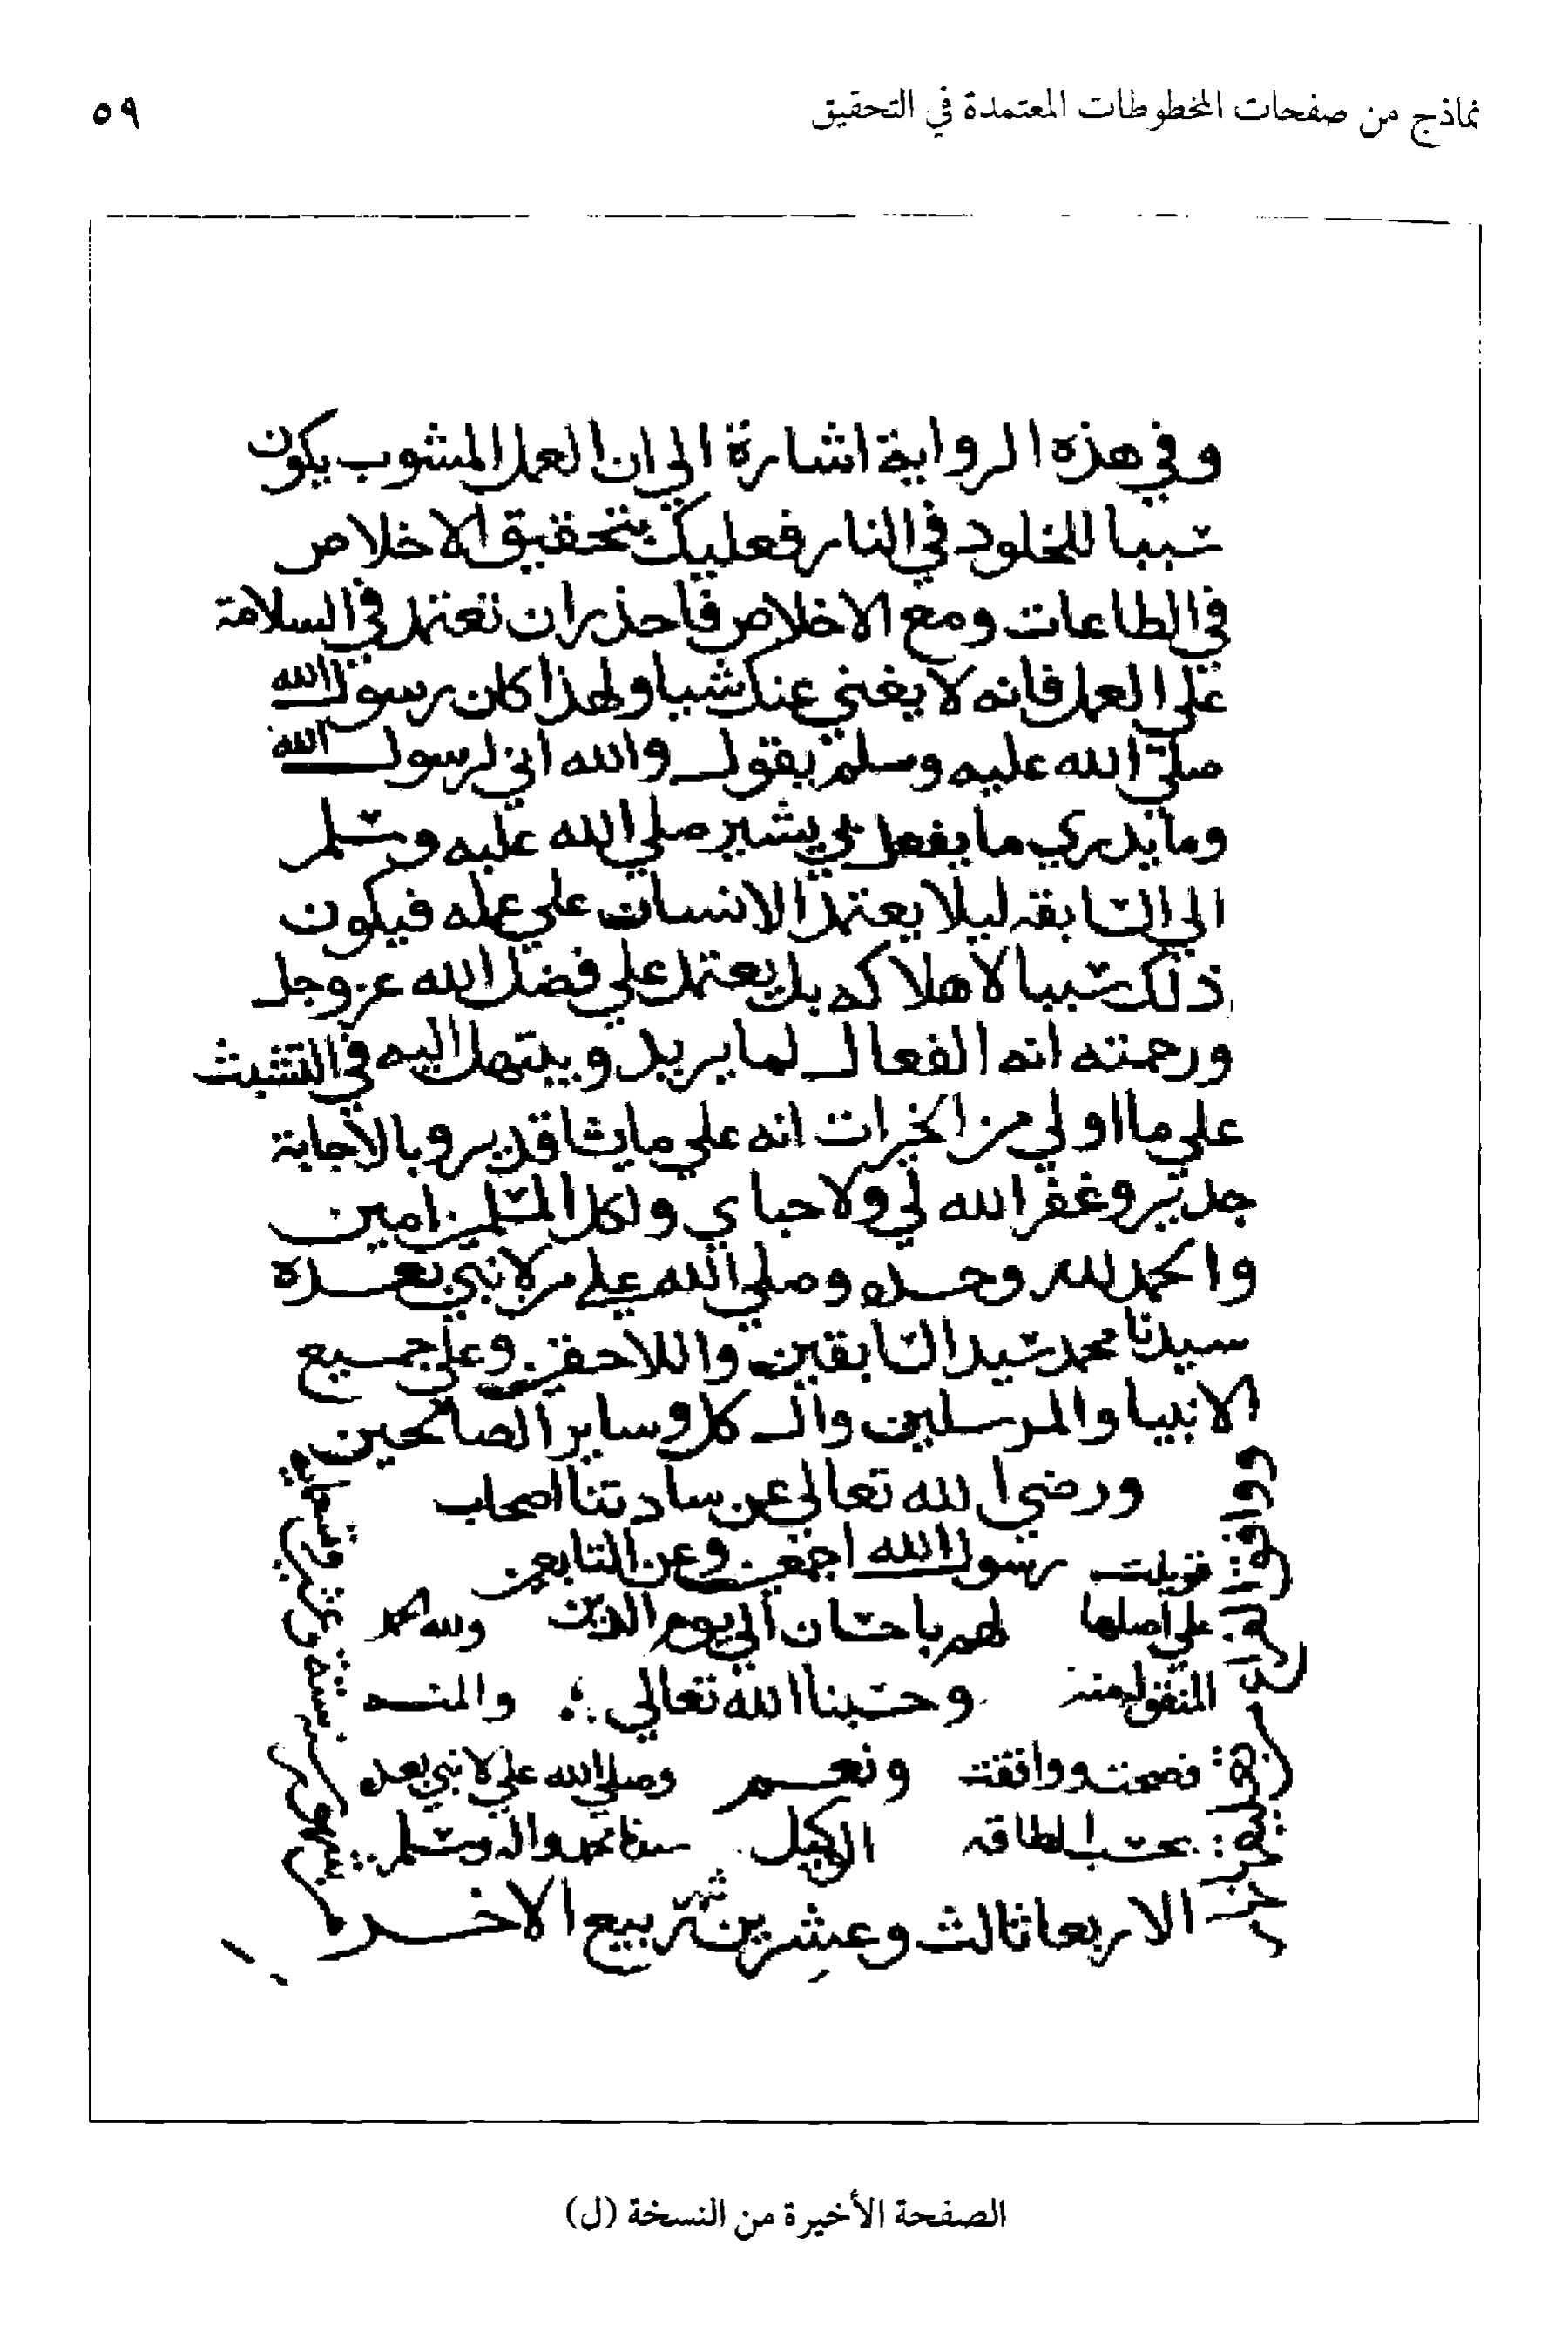 نماذج من صفحات المخطوطات المعتمدة في التحقيق
٥٩
وفي هذه الرواية اشارة الي ان العمل المشوب يكون
سببا للخلود في النار فعليك بتحقيق الاخلاص
في الطاعات ومع الاخلاص فاحذر ان تعتمد في السلامة
علي العمل فانه لا يغني عنك شيا ولهذا كان رسول الله
صلي الله عليه وسلم يقول والله اني لرسول الله
وما يدري ما يفعل بي يشير صلي الله عليه وسلم
الي السابقه ليلا يعتمد الانسان علي عمله فيكون
ذلك سببا لاهلاكه بل يعتمد علي فضل الله عز وجل
ورحمته انه الفعال لما يريد ويبتهل اليه في التثبيت
علي ما اولي من الخيرات انه علي ما يشا قدير وبالاجابة
جدير وغفر الله لي ولاحباي ولكل المسلمين امين
والحمد لله وحده وصلي الله علي من لا نبي بعده
سيدنا محمد سيد السابقين واللاحقين وعلي جميع
الانبيا والمرسلين وال كل وساير الصالحين
ورضي الله تعالي عن سادتنا اصحاب
رسول الله اجمعين وعن التابعين
لهم باحسان الي يوم الدين
وحسبنا الله تعالي
ونعم
الوكيل
قوبلت
علي اصلها
المنقول منه
فصحت ووافقت
بحسب الطاقه
ولله الحمد
والمنه
وصلي الله علي لا نبي بعده
سيدنا محمد واله وسلم
ووافق الفراغ
الاربعا ثالث وعشرين شهر ربيع الاخر
الصفحة الأخيرة من النسخة (ل)